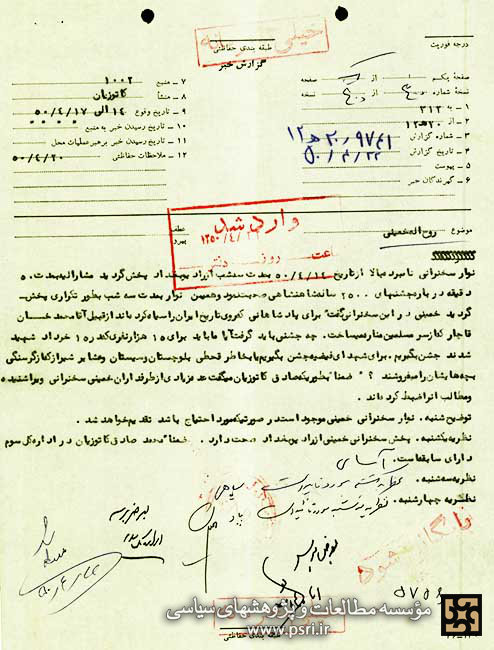 درجه فوریت
طبقه بندی حفاظتی
خیلی محرمانه
گزارش خبر
صفحه یکم از یک صفحه
نسخه شماره از نسخه
۱ ـ به ۳۱۲
۲ ـ از ۲۰ ه ۱۲
۳ ـ شماره گزارش ۹۷۴۱ / ۲۰ ه ۱۲
۴ ـ تاریخ گزارش
۵ ـ پیوست
۶ ـ گیرندگان خبر
۷ ـ منبع ۱۰۰۲
۸ ـ منشأ کاتوزیان
۹ ـ تاریخ وقوع ۱۴ الی ۵۰/۴/۱۷
۱۰ ـ تاریخ رسیدن خبر به منبع
۱۱ ـ تاریخ رسیدن خبر به رهبر عملیات محل
۱۲ ـ ملاحظات حفاظتی ۵۰/۴/۲۰
وارد شد
۱۳۵۰/۴/
ساعت روز دفتر
موضوع روح اله خمینی
عطف
پیرو
نوار سخنرانی نامبرده بالا از تاریخ ۵۰/۴/۱۴ بمدت سه شب از رادیو بغداد پخش گردید مشارالیه بمدت ۵۰
دقیقه درباره جشنهای ۲۵۰۰ ساله شاهنشاهی صحبت نمود و همین نوار بمدت سه شب بطور تکراری پخش
گردید خمینی در این سخنرانی گفت" برای پادشاهانی که روی تاریخ ایران را سیاه کرده اند از قبیل آقا محمد خان
قاجار که از سر مسلمین مناره میساخت. چه جشنی باید گرفت آیا ما باید برای ۱۵ هزار نفری که در ۱۰ خرداد شهید
شدند جشن بگیریم . برای شهدای فیضیه جشن بگیریم یا بخاطر قحطی بلوچستان و سیستان و عشایر شیراز که از گرسنگی
بچه هایشان را میفروشند ؟ " ضمنا" بطوریکه صادق کاتوزیان میگفت عده زیادی از طرفداران خمینی سخنرانی ویرا شنیده
و مطالب آنرا ضبط کرده اند .
توضیح شنبه . نوار سخنرانی خمینی موجود است در صورتیکه مورد احتیاج باشد تقدیم خواهد شد .
نظریه یکشنبه . پخش سخنرانی خمینی از رادیو بغداد صحت دارد . ضمنا" محمد صادق کاتوزیان در اداره کل سوم
دارای سابقه است.
نظریه سه شنبه . نظریه یکشنبه مورد تایید است
نظریه چهارشنبه . نظریه سه شنبه مورد تایید است
بایگانی شود
مؤسسه مطالعات و پژوهشهای سیاسی
www.psri.ir
طبقه بندی حفاظتی